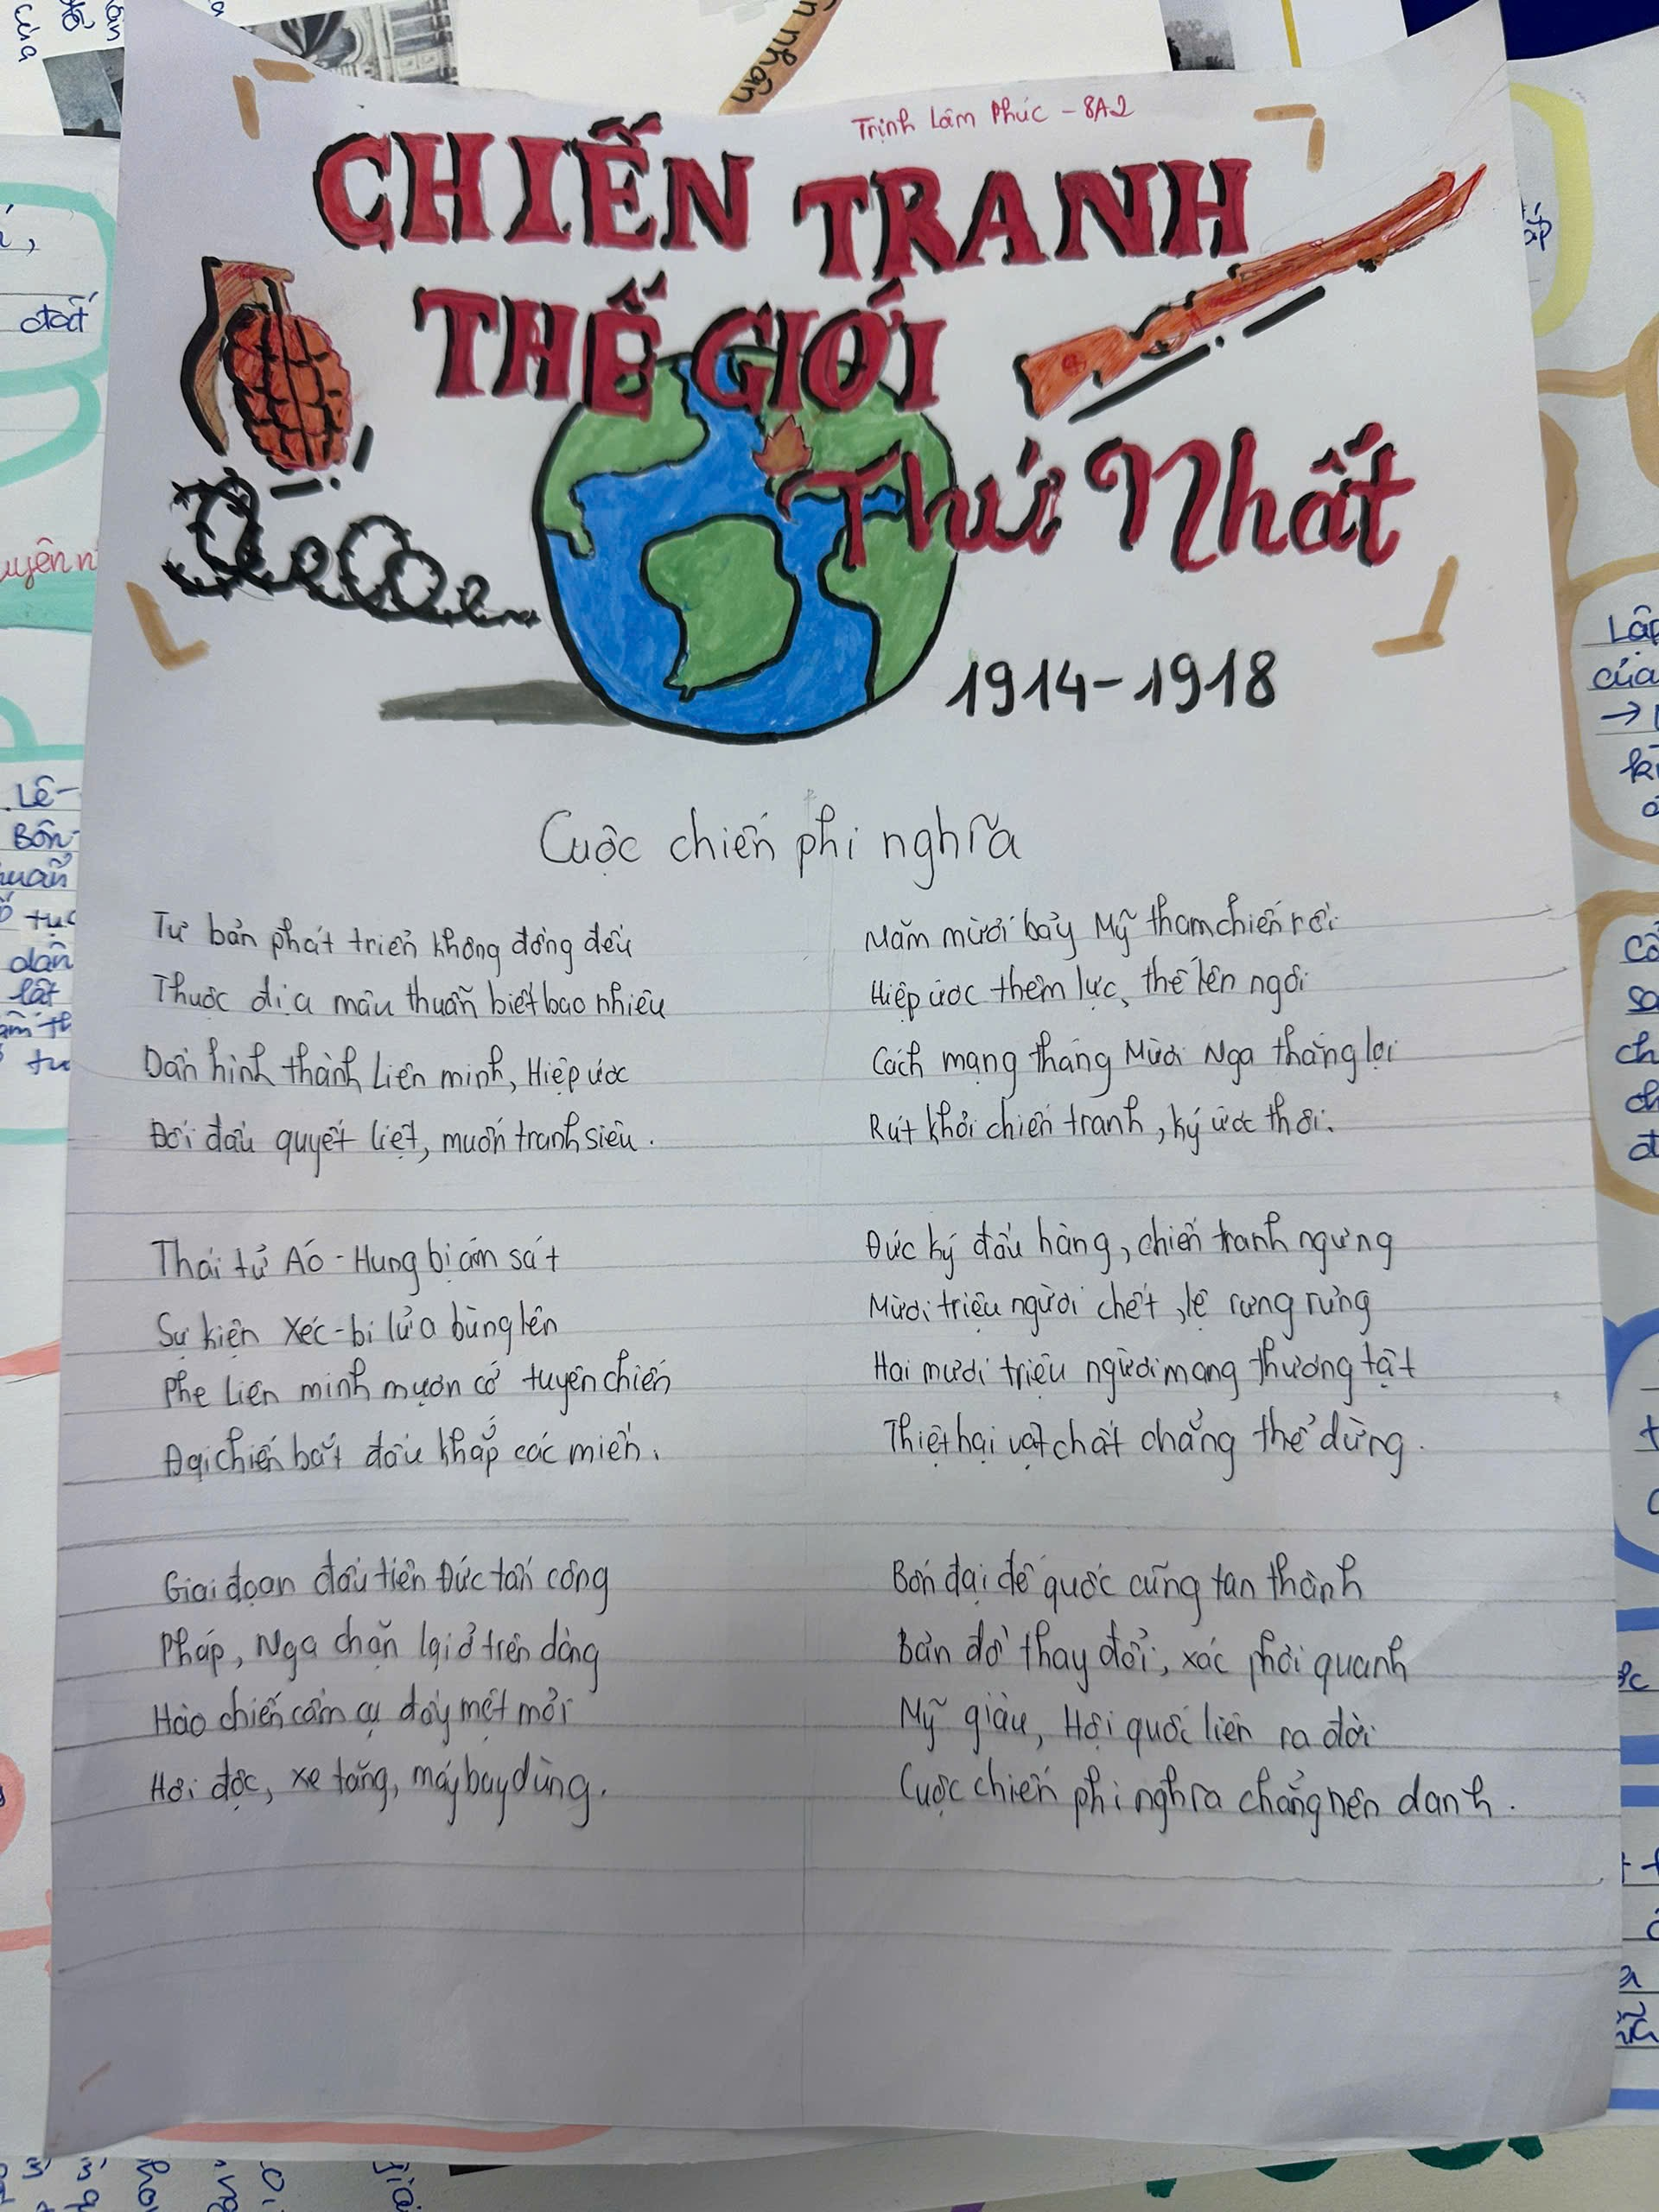 Trịnh Lâm Phúc - 8A2
CHIẾN TRANH
THẾ GIỚI
Thứ Nhất
1914-1918
Cuộc chiến phi nghĩa
Tư bản phát triển không đồng đều
Thuộc địa mâu thuẫn biết bao nhiêu
Dần hình thành Liên minh, Hiệp ước
Đối đầu quyết liệt, muốn tranh siêu.
Thái tử Áo - Hung bị ám sát
Sự kiện Xéc-bi lửa bùng lên
Phe Liên minh mượn cớ tuyên chiến
Đại chiến bắt đầu khắp các miền.
Giai đoạn đầu tiên Đức tấn công
Pháp, Nga chặn lại ở trên dòng
Hào chiến cầm cự đầy mệt mỏi
Hơi độc, xe tăng, máy bay dùng.
Năm mười bảy Mỹ tham chiến rồi
Hiệp ước thêm lực, thế lên ngôi
Cách mạng tháng Mười Nga thắng lợi
Rút khỏi chiến tranh, ký ước thôi.
Đức ký đầu hàng, chiến tranh ngưng
Mười triệu người chết, lệ rưng rưng
Hai mươi triệu người mang thương tật
Thiệt hại vật chất chẳng thể dừng.
Bốn đại đế quốc cũng tan thành
Bản đồ thay đổi, xác phơi quanh
Mỹ giàu, Hội quốc liên ra đời
Cuộc chiến phi nghĩa chẳng nên danh.